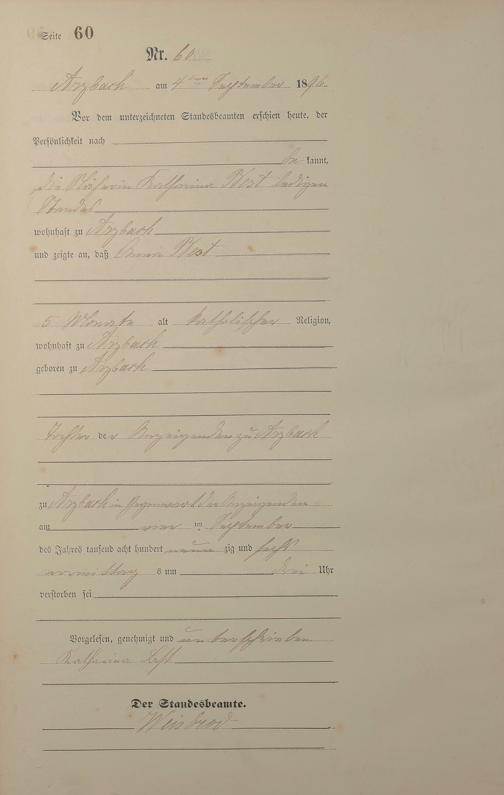 Seite 60
Nr. 60
Arzbach am 4ten September 1896
Vor dem unterzeichneten Standesbeamten erschien heute, der
Persönlichkeit nach
be kannt,
die Näherin Katharina Wost ledigen
Standes
wohnhaft zu Arzbach
und zeigte an, daß Anna Wost
5 Monate alt katholischer Religion,
wohnhaft zu Arzbach
geboren zu Arzbach
Tochter der Anzeigenden zu Arzbach
zu Arzbach in Gegenwart der Anzeigenden
am vier ten September
des Jahres tausend acht hundert neun zig und sechs
vormittag s um drei Uhr
verstorben sei
Vorgelesen, genehmigt und unterschrieben
Katharina
Der Standesbeamte.
Weisbrod